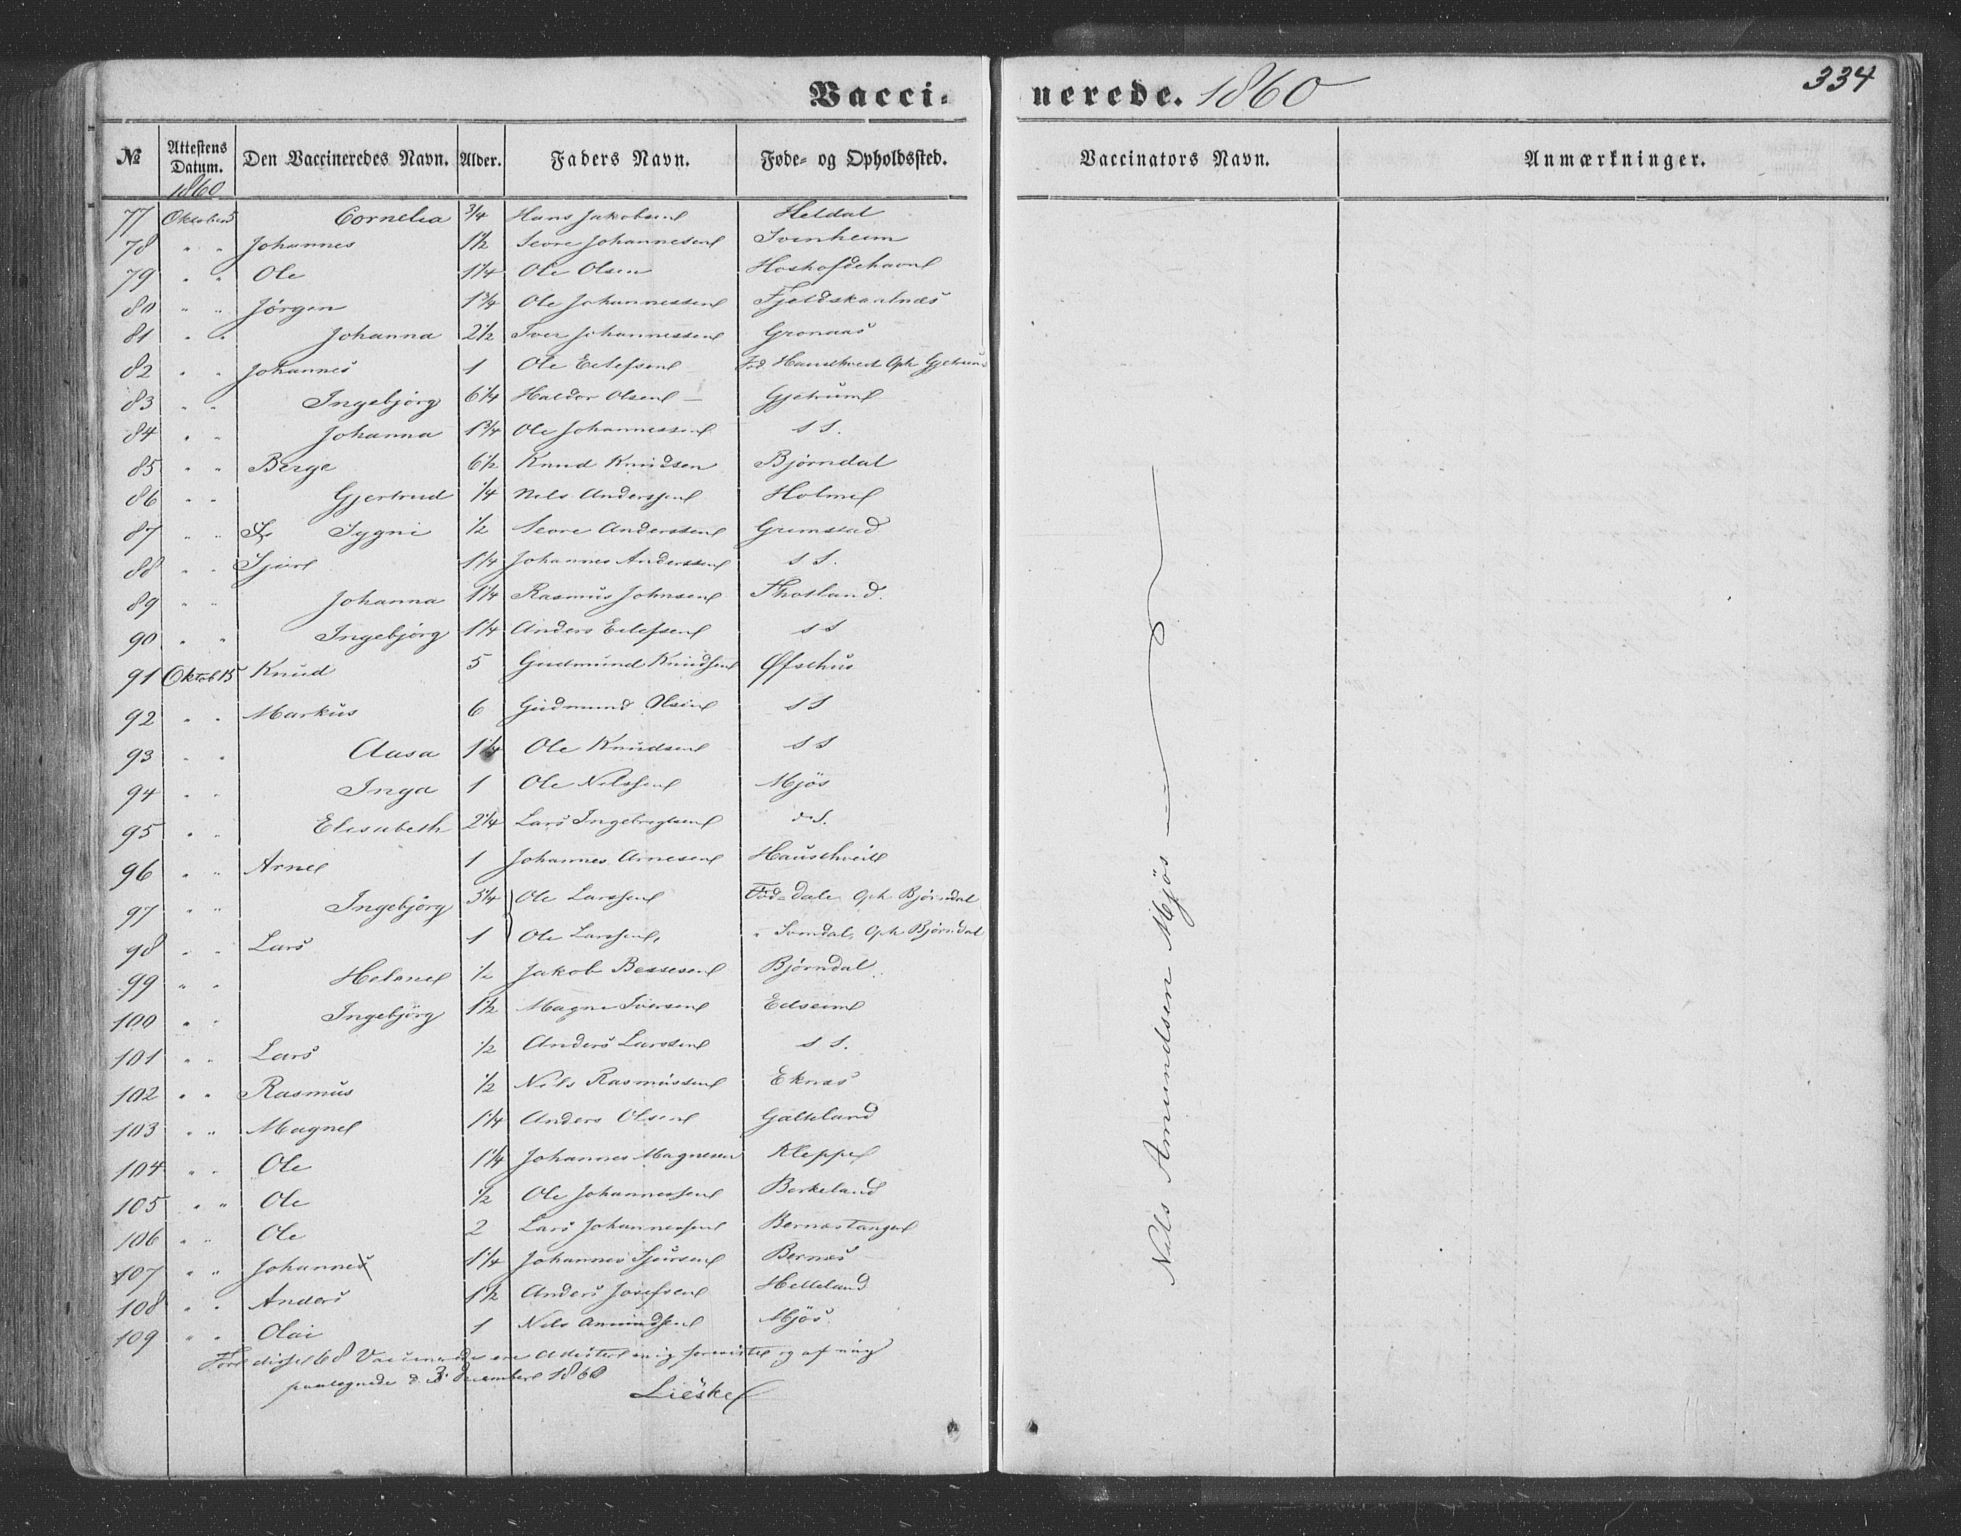 Vacci- nerede. 1860 334
№ Attestens Datum. Den Vaccineredes Navn. Alder. Faders Navn. Føde- og Opholdssted. Vaccinators Navn. Anmærkninger.
1860
77 Oktober 5 Cornelia 3/4 Hans Jakobsen Heldal
78 " " Johannes 1 1/2 Johannesen
79 " " Ole 1 1/4 Ole Olsen
80 " " Jørgen 1 3/4 Ole Johannessen Fjeldskaalnæs
81 " " Johanna 2 1/2 Iver Johannessen Grønaas
82 " " Johannes 1 Ole Hauschveit Oph
83 " " Ingebjörg 6 1/4 Haldor Olsen Gjetrum
84 " " Johanna 1 3/4 Ole Johannessen s s.
85 " " Berge 6 1/2 Knud Knudsen Bjørndal
86 " " Gjertrud 1/4 Nels Anderssen Holme
87 " " 1/2 Anderssen Grimstad
88 " " 1 1/4 Johannes Anderssen s s.
89 " " Johanna 1 1/4 Rasmus Johnsen
90 " " Ingebjörg 1 1/4 Anders s s
91 Oktob 15 Knud 5 Gudmund Knudsen Øfsthus
92 " " Markus 6 Gudmund Olsen s s
93 " " Aasa 1 1/4 Ole Knudsen s s
94 " " Inga 1 Ole Nelssen Mjös
95 " " Elisabeth 2 1/4 Lars Ingebregtsen s s.
96 " " Arne 1 Johannes Arnesen
97 " " Ingebjörg 5 1/4 Ole Larssen Fød- Dale Oph Bjørndal
98 " " Lars 1 Ole Larssen, " Oph Bjørndal
99 " " Helene 1/2 Jakob Bessesen Bjørndal
100 " " Ingebjörg 1 1/2 Magne Iversen Edseim
101 " " Lars 1/2 Anders Larssen s s.
102 " " Rasmus 1/2 Nils Rasmussen Eknæs
103 " " Magne 1 1/4 Anders Olsen Galteland
104 " " Ole 1 1/4 Johannes Magnesen Kleppe
105 " " Ole 1/2 Ole Johannessen Birkeland
106 " " Ole 2 Lars Johannessen Bernæstangen
107 " " Johannes 1 1/4 Johannes Sjursen Bernæs
108 " " Anders 1 1/2 Anders Josefsen Helleland
109 " " Olai 1 Nils Amundsen Mjös.
For disse 68 Vaccinerede ere Attester mig foreviste og af mig
paategnede d. 3 December 1860
Lieske
Nils Amundsen Mjös